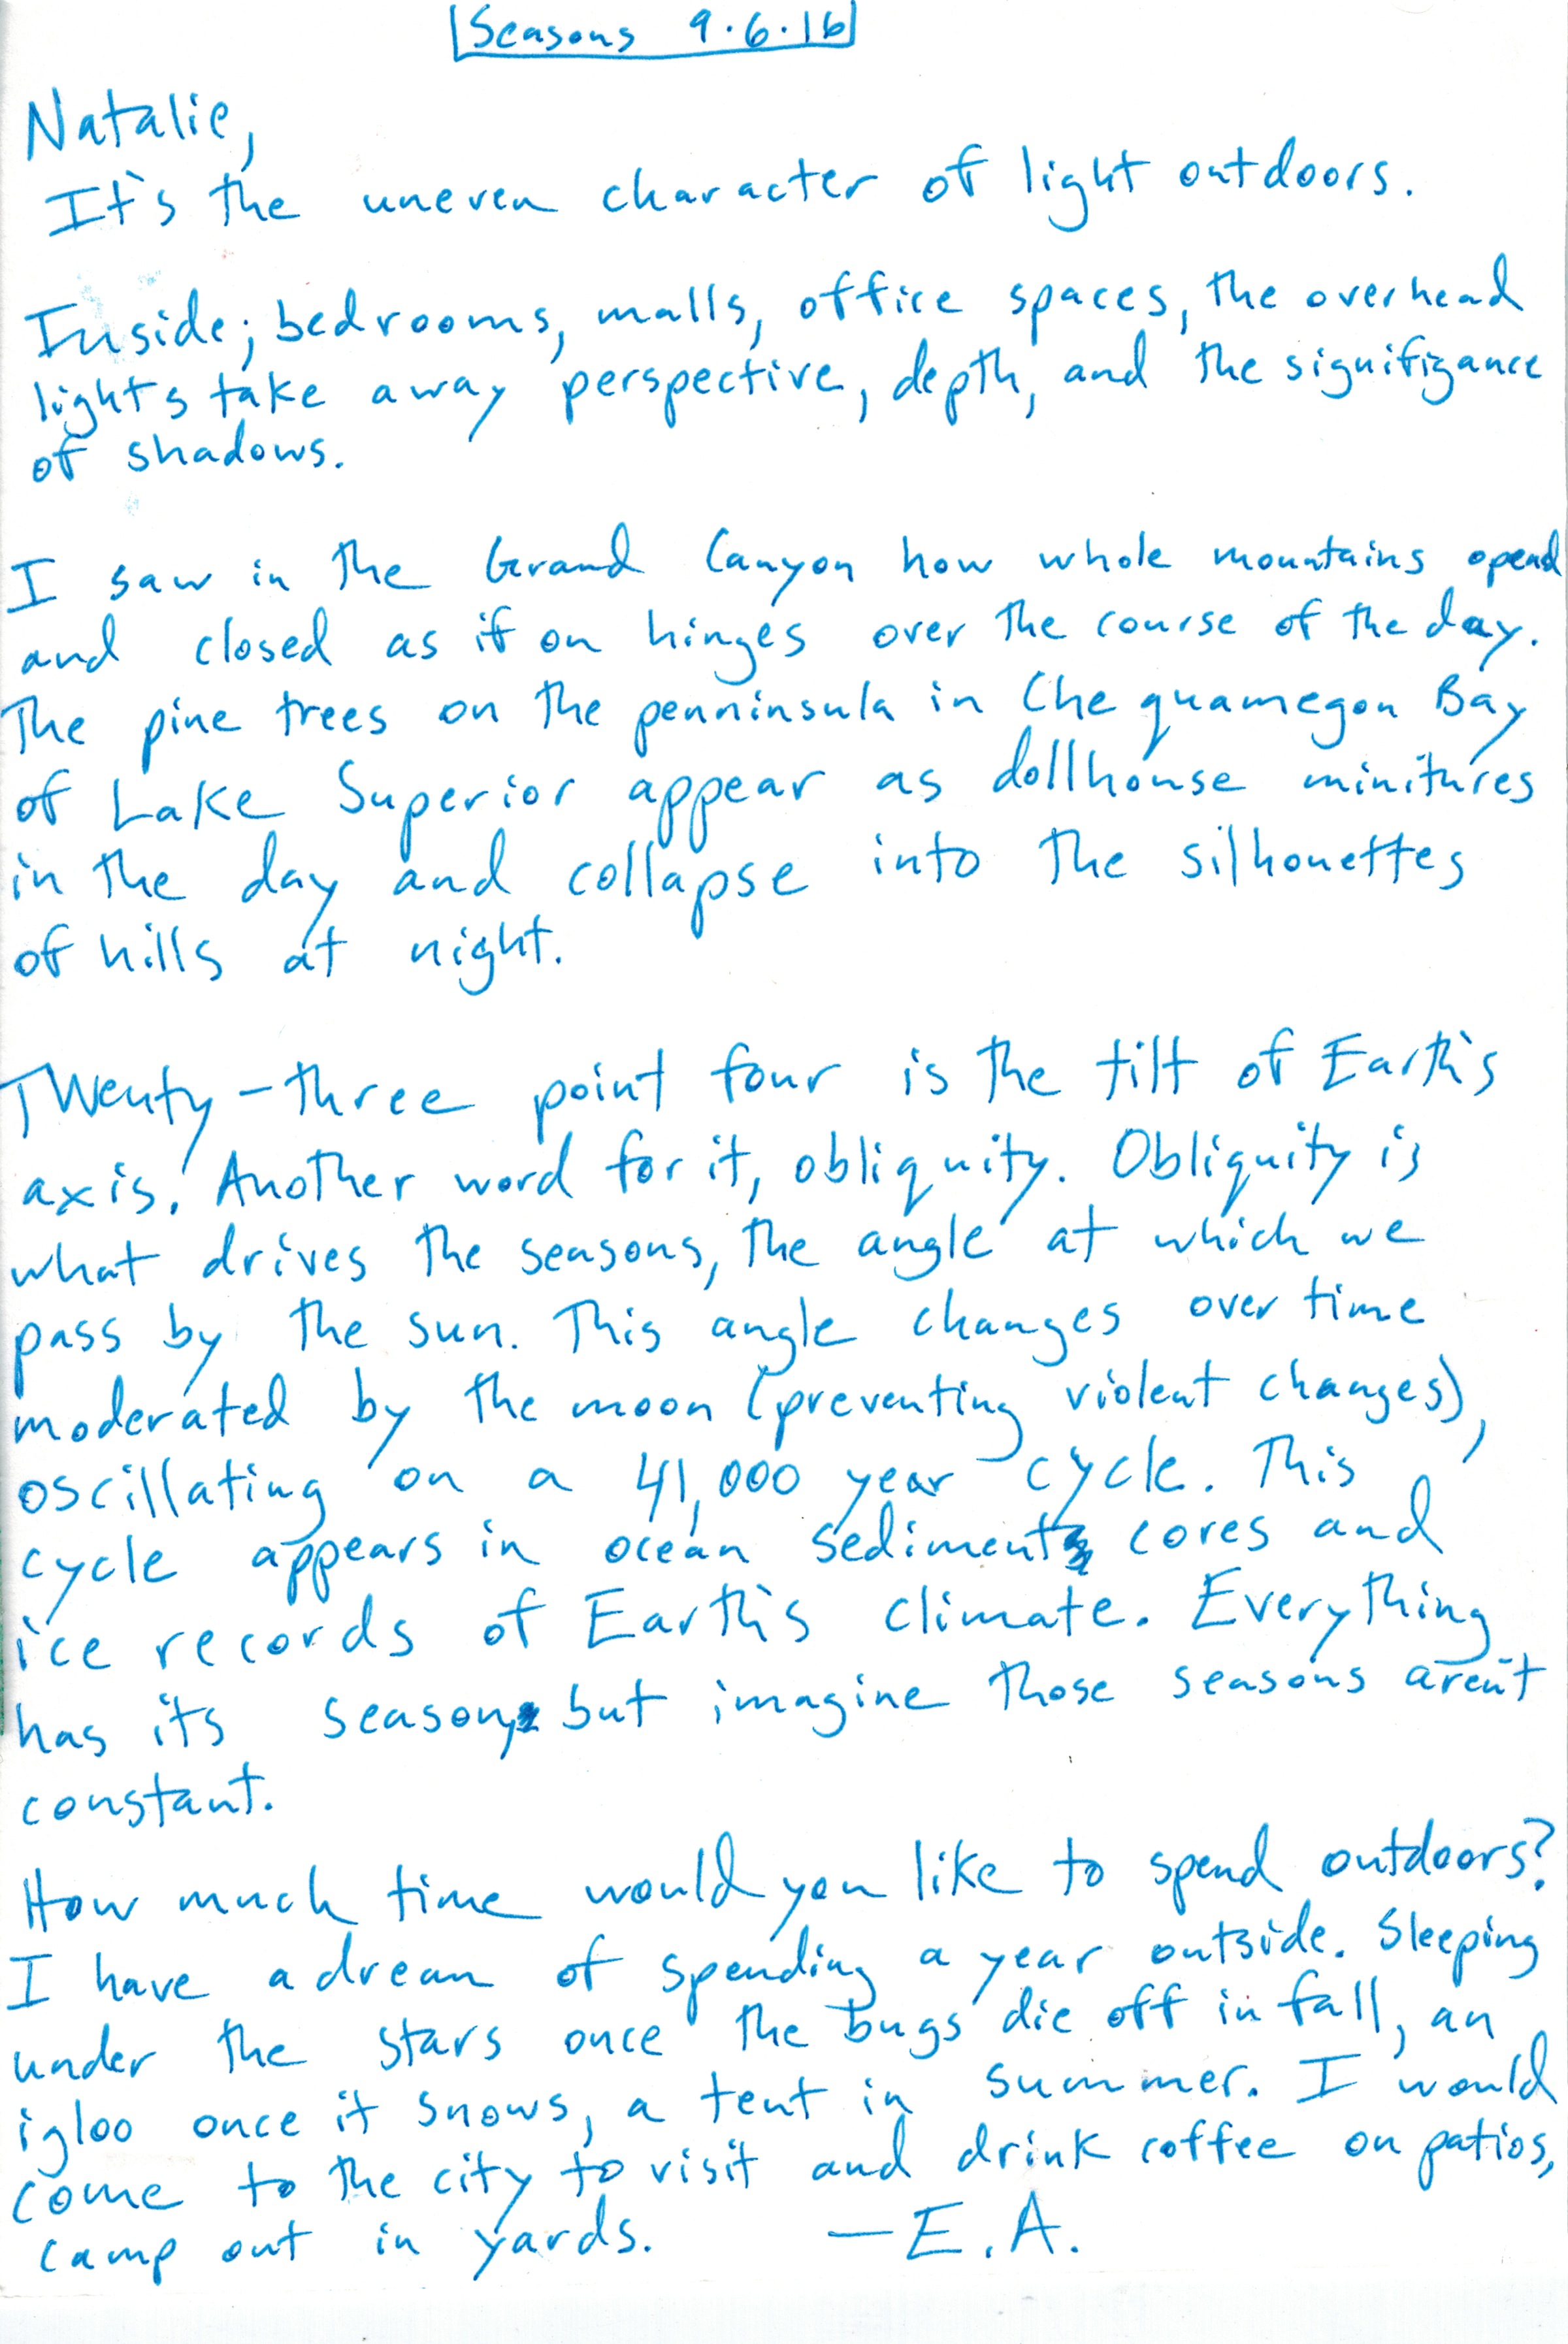 Seasons 9.6.16
Natalie,
It's the uneven character of light outdoors.
Inside; bedrooms, malls, office spaces, the overhead
lights take away perspective, depth, and the signifigance
of shadows.
I saw in the Grand Canyon how whole mountains opend
and closed as if on hinges over the course of the day.
The pine trees on the penninsula in Chequamegon Bay
of Lake Superior appear as dollhouse minitures
in the day and collapse into the silhouettes
of hills at night.
Twenty-three point four is the tilt of Earth's
axis. Another word for it, obliquity. Obliquity is
what drives the seasons, the angle at which we
pass by the sun. This angle changes over time
moderated by the moon (preventing violent changes),
oscillating on a 41,000 year cycle. This
cycle appears in ocean sediment cores and
ice records of Earth's climate. Everything
has it's season, but imagine those seasons aren't
constant.
How much time would you like to spend outdoors?
I have a dream of spending a year outside. Sleeping
under the stars once the bugs die off in fall, an
igloo once it snows, a tent in summer. I would
come to the city to visit and drink coffee on patios,
camp out in yards. —E.A.